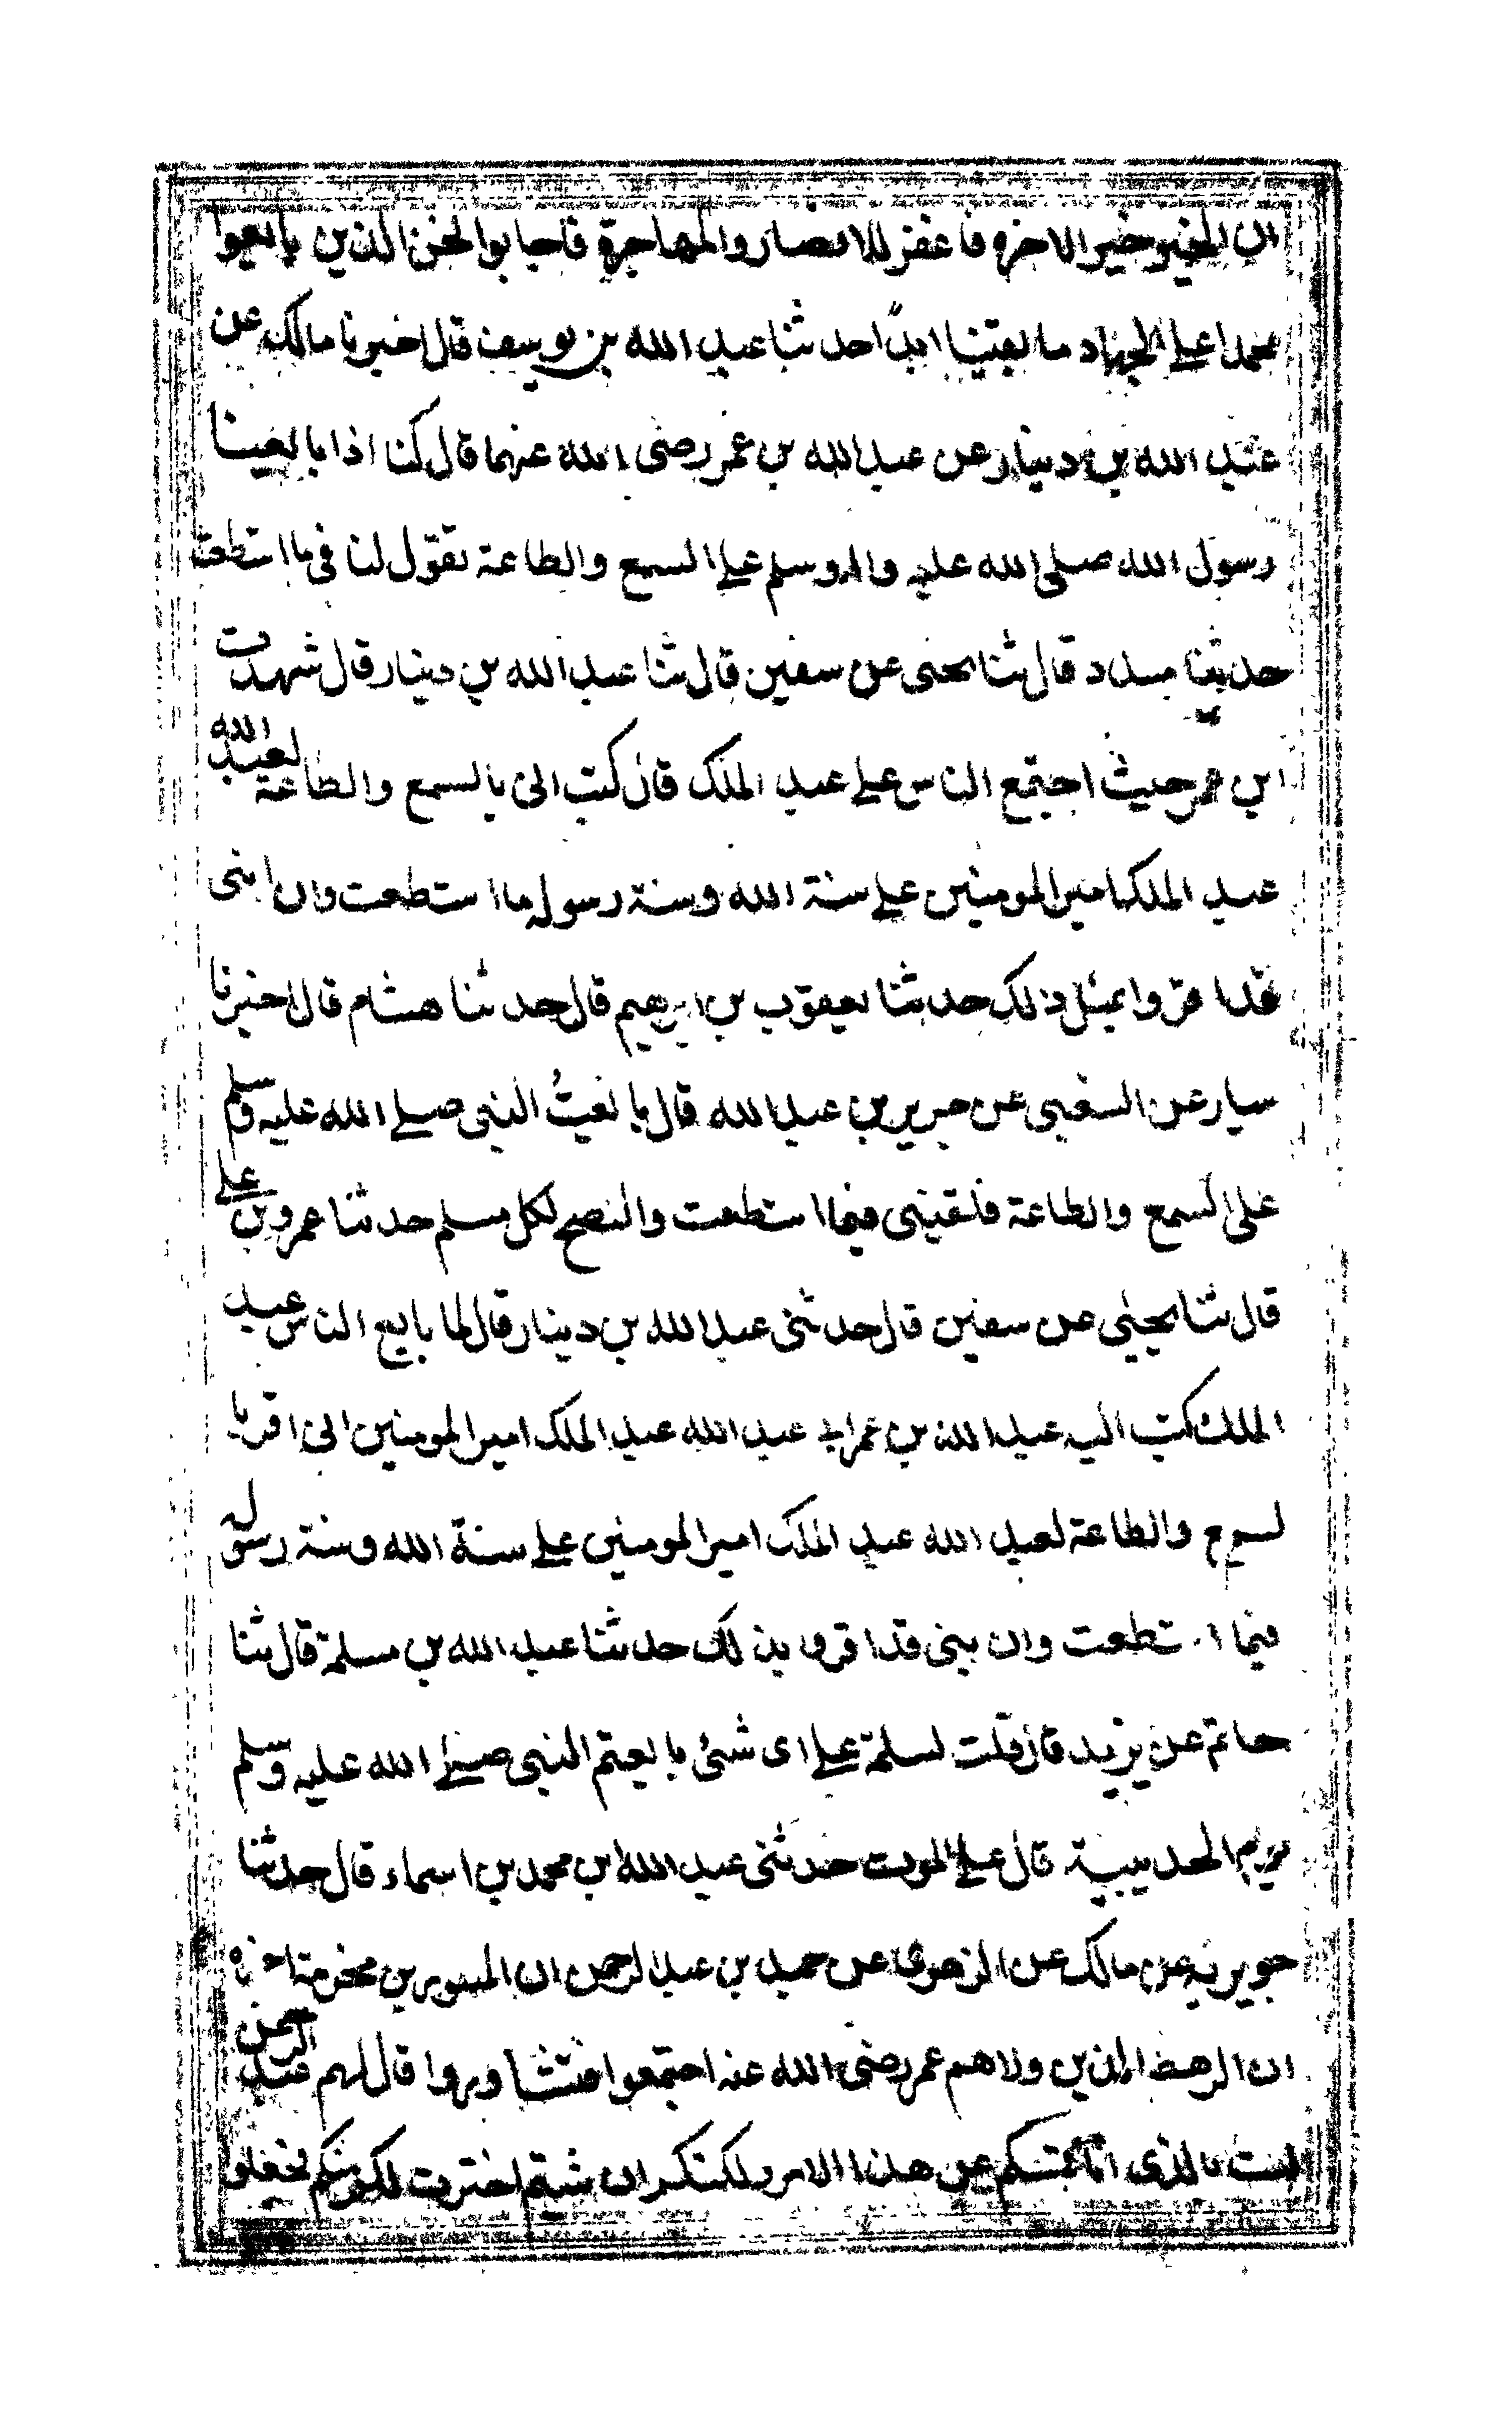 ان الخير خير الاخره فاغفر للانصار والمهاجرة فاجابوا نحن الذين بايعوا
محمدا على الجهاد ما بقينا ابدًا حدثنا عبد الله بن يوسف قال اخبرنا مالك عن
عبد الله بن دينار عن عبد الله بن عمر رضى الله عنهما قال كنا اذا بايعنا
رسول الله صلى الله عليه واله وسلم على السمع والطاعة يقول لنا فى ما استطعت
حدثنا مسدد قال ثنا يحيى عن سفين قال ثنا عبد الله بن دينار قال شهدت
ابن عمر حيث اجتمع الناس على عبد الملك قال كتب انى بالسمع والطاعة لعبد الله
عبد الملك امير المومنين على سنة الله وسنة رسوله ما استطعت وان بنى
قد اقروا بمثل ذلك حدثنا يعقوب بن ابرهيم قال حدثنا هشام قال اخبرنا
سيار عن الشعبى عن جرير بن عبد الله قال بايعتُ النبى صلى الله عليه وسلم
على السمع والطاعة فلقننى فيما استطعت والنصح لكل مسلم حدثنا عمرو بن على
قال ثنا يحيى عن سفين قال حدثنى عبد الله بن دينار قال لما بايع الناس عبد
الملك كتب اليه عبد الله بن عمر الى عبد الله عبد الملك امير المومنين انى اقر با
لسمع والطاعة لعبد الله عبد الملك امير المومنين على سنة الله وسنة رسوله
فيما استطعت وان بنى قد اقروا بذلك حدثنا عبد الله بن مسلمة قال ثنا
حاتم عن يزيد قال قلت لسلمة على اى شئ بايعتم النبى صلى الله عليه وسلم
يوم الحديبية قال على الموت حدثنى عبد الله ابن محمد بن اسماء قال حدثنا
جويرية عن مالك عن الزهرى عن حميد بن عبد الرحمن ان المسور بن مخرمة اخبره
ان الرهط الذين ولاهم عمر رضى الله عنه اجتمعوا فتشاوروا قال لهم عبد الرحمن
لست بالذى انافسكم عن هذا الامر ولكنكم ان شئتم اخترت لكم منكم فجعلوا